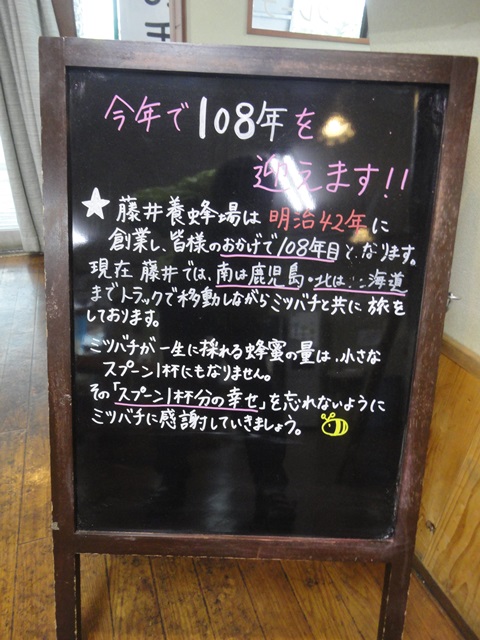 今年で108年を
迎えます!!
★藤井養蜂場は明治42年に
創業し、皆様のおかげで108年目となります。
現在 藤井では、南は鹿児島・北は海道
までトラックで移動しながらミツバチと共に旅を
しております。
ミツバチが一生に採れる蜂蜜の量は、小さな
スプーン1杯にもなりません。
その「スプーン1杯分の幸せ」を忘れないように
ミツバチに感謝していきましょう。